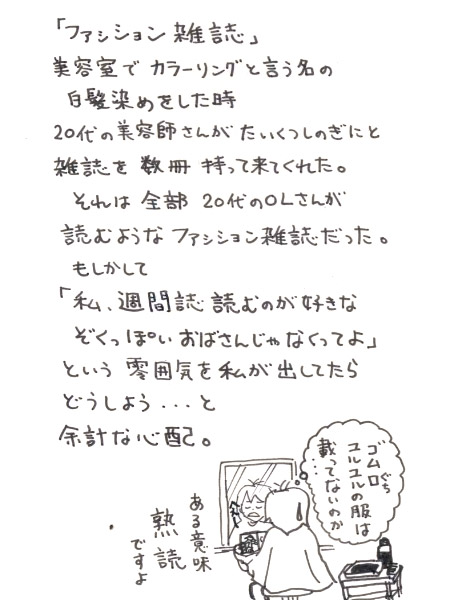 「ファッション雑誌」
美容室で カラーリングと言う名の
白髪染めをした時
20代の美容師さんが たいくつしのぎにと
雑誌を 数冊 持って来てくれた。
それは 全部 20代のOLさんが
読むような ファッション雑誌だった。
もしかして
「私、週間誌 読むのが好きな
ぞくっぽい おばさんじゃ なくってよ」
という 雰囲気を 私が 出してたら
どうしよう...と
余計な心配。
ゴム口
ぐち
ユルユルの服は
載ってないのか
…
ある意味
熟読
ですよ